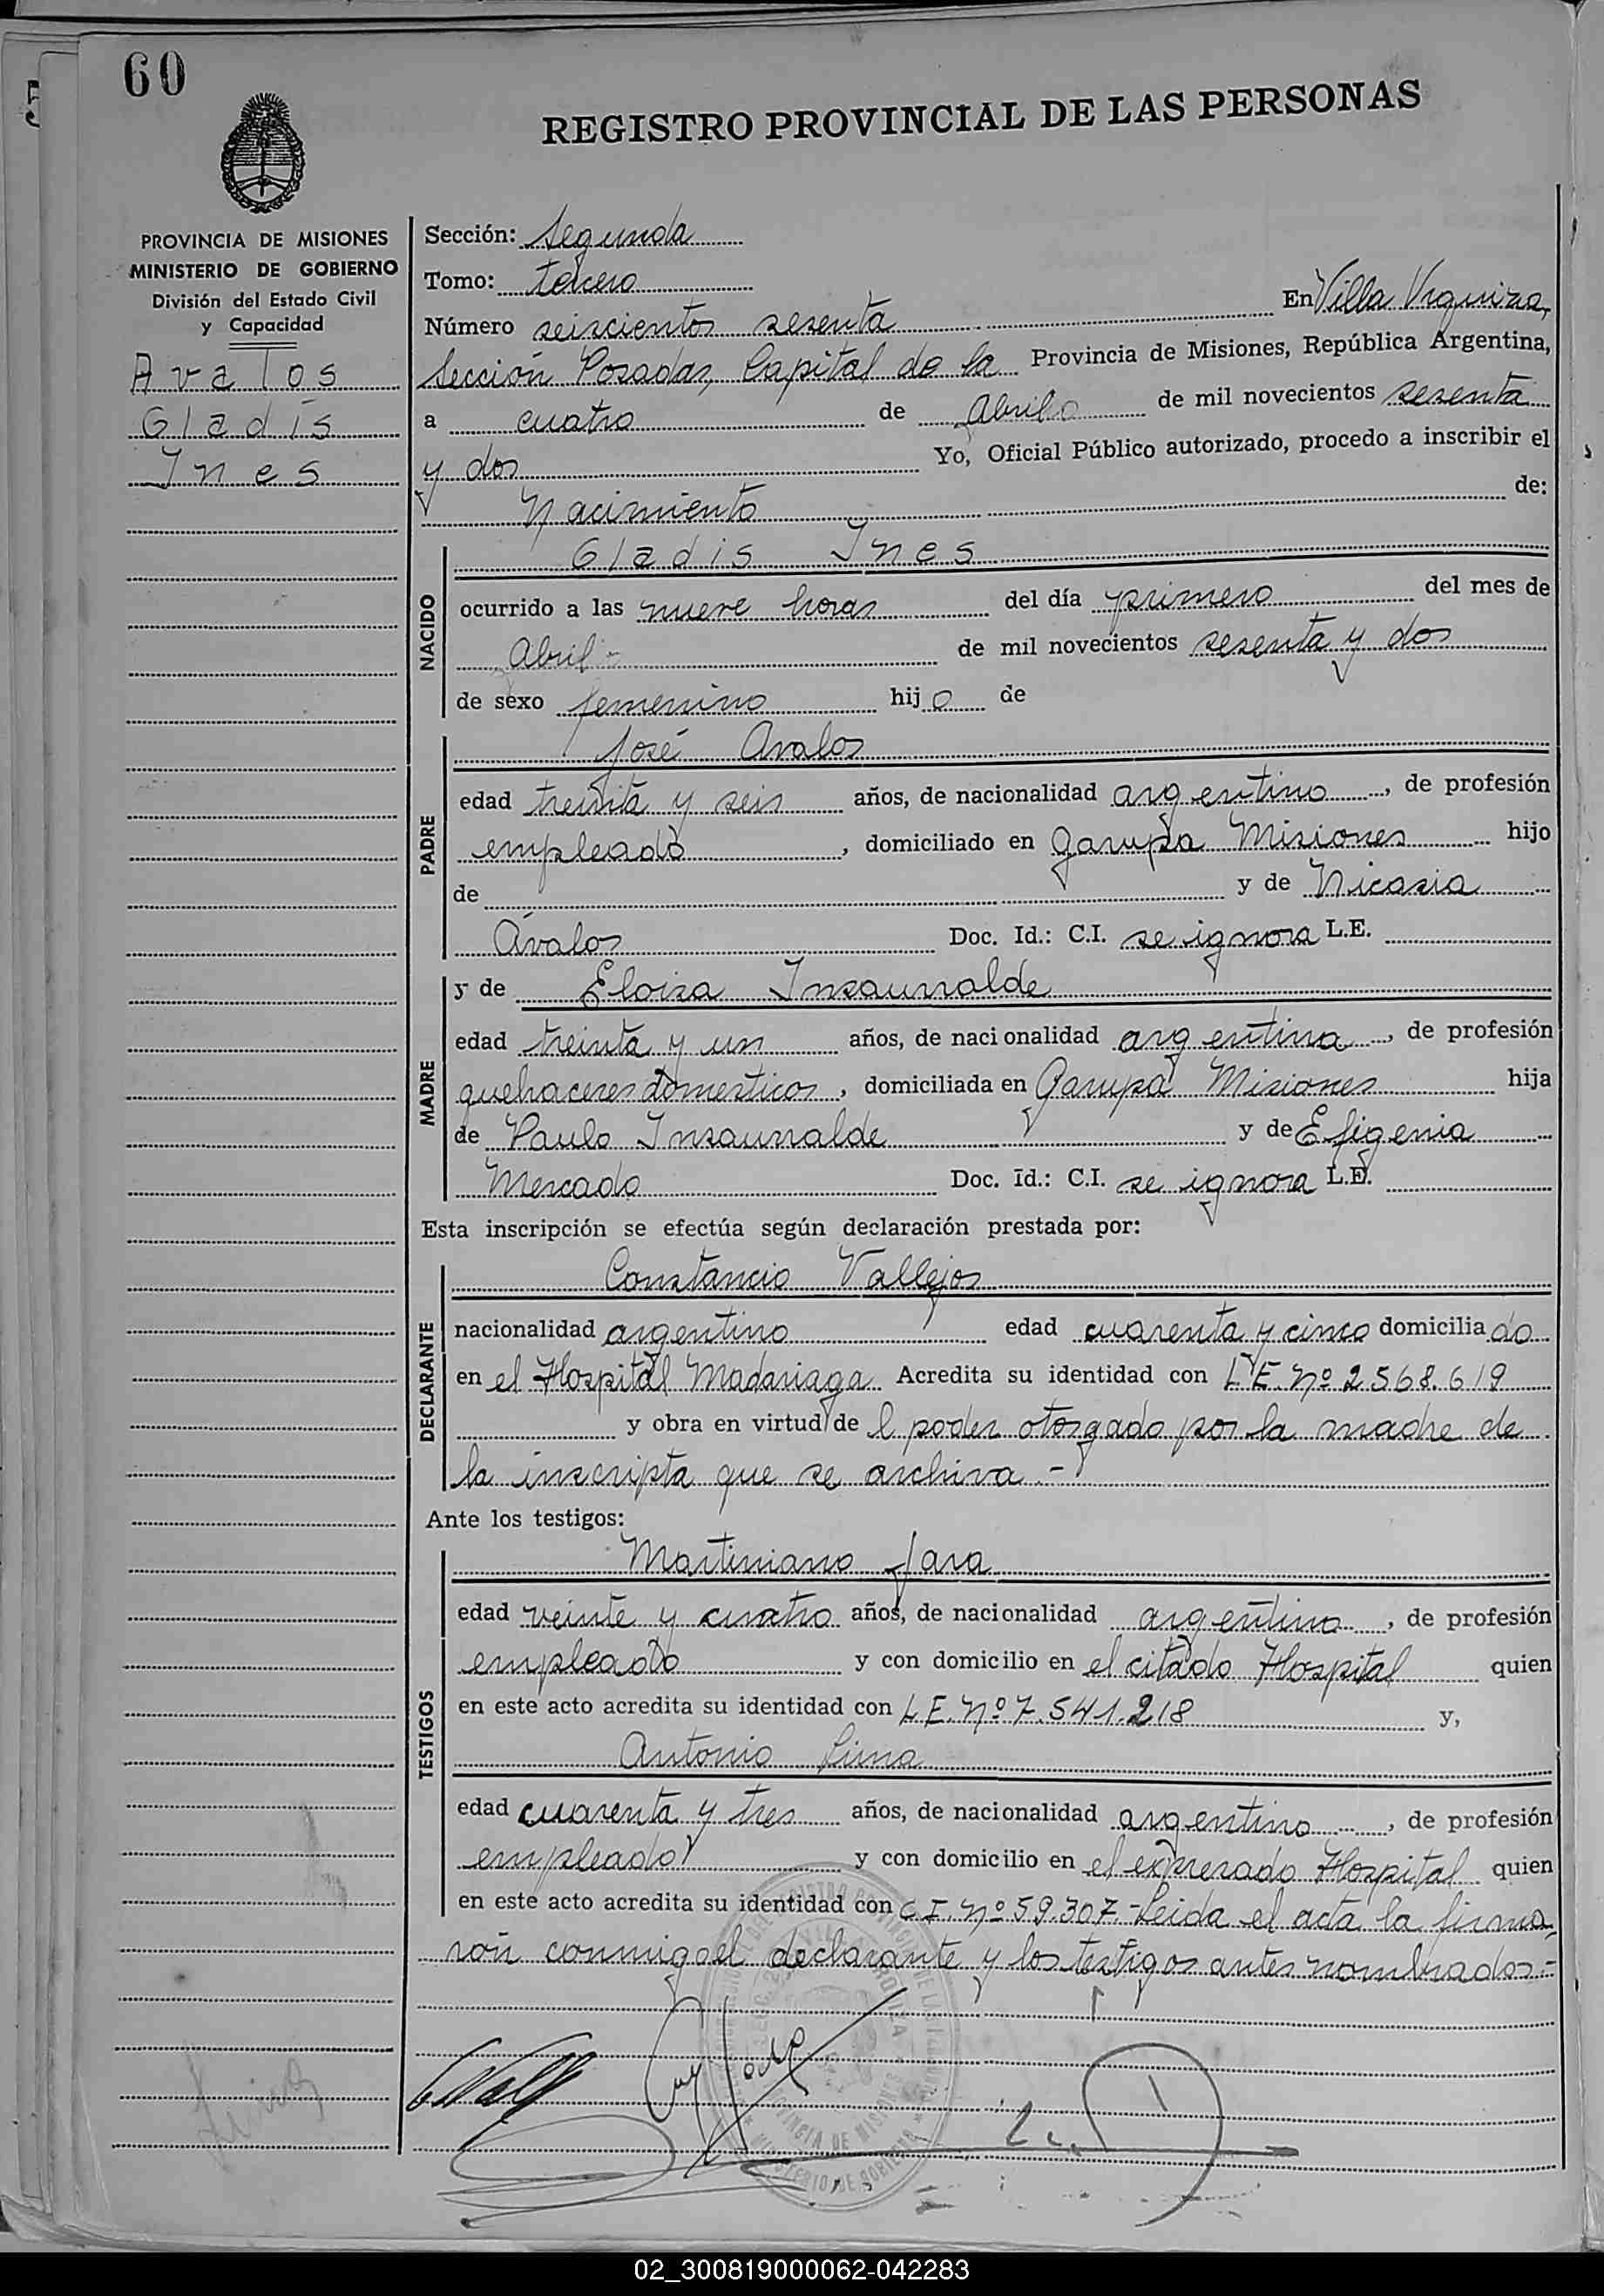 60
REGISTRO PROVINCIAL DE LAS PERSONAS
PROVINCIA DE MISIONES
MINISTERIO DE GOBIERNO
División del Estado Civil
y Capacidad
Avalos
Gladis
Ines
Sección: Segunda
Tomo: tercero
Número seiscientos sesenta En Villa Urquiza,
Sección Posadas, Capital de la Provincia de Misiones, República Argentina,
a cuatro de Abril de mil novecientos sesenta
y dos Yo, Oficial Público autorizado, procedo a inscribir el
Nacimiento de:
NACIDO
Gladis Ines
ocurrido a las nueve horas del día primero del mes de
Abril- de mil novecientos sesenta y dos
de sexo femenino hijo de
PADRE
José Avalos
edad treinta y seis años, de nacionalidad argentino, de profesión
empleado, domiciliado en Garupa Misiones hijo
de y de Nicasia
Ávalos Doc. Id.: C.I. se ignora L.E.
MADRE
y de Eloisa Insaurralde
edad treinta y un años, de nacionalidad argentina, de profesión
quehaceres domesticos, domiciliada en Garupá Misiones hija
de Paulo Insaurralde y de Efigenia
Mercado Doc. Id.: C.I. se ignora L.E.
Esta inscripción se efectúa según declaración prestada por:
DECLARANTE
Constancio Vallejos
nacionalidad argentino edad cuarenta y cinco domiciliado
en el Hospital Madariaga Acredita su identidad con L.E. Nº 2.568.619
y obra en virtud del poder otorgado por la madre de
la inscripta que se archiva.-
Ante los testigos:
TESTIGOS
Martiniano Jara
edad veinte y cuatro años, de nacionalidad argentino, de profesión
empleado y con domicilio en el citado Hospital quien
en este acto acredita su identidad con L.E. Nº 7.541.218 y,
Antonio Lima
edad cuarenta y tres años, de nacionalidad argentino, de profesión
empleado y con domicilio en el expresado Hospital quien
en este acto acredita su identidad con C.I. Nº 59.307.- Leida el acta la firma
ron conmigo el declarante y los testigos antes nombrados.-
02_300819000062-042283